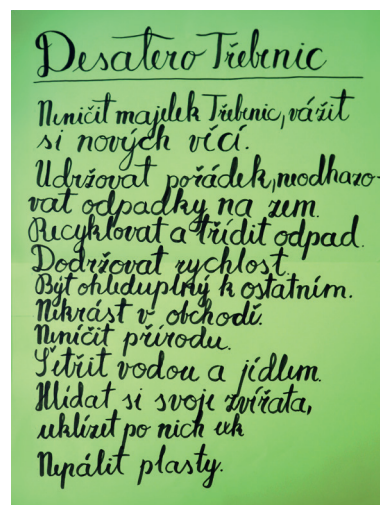 Desatero Třebenic
Neničit majetek Třebenic, vážit
si nových věcí.
Udržovat pořádek, neodhazo-
vat odpadky na zem.
Recyklovat a třídit odpad.
Dodržovat rychlost.
Být ohleduplný k ostatním.
Nekrást v obchodě.
Neničit přírodu.
Šetřit vodou a jídlem.
Hlídat si svoje zvířata,
uklízet po nich
Nepálit plasty.